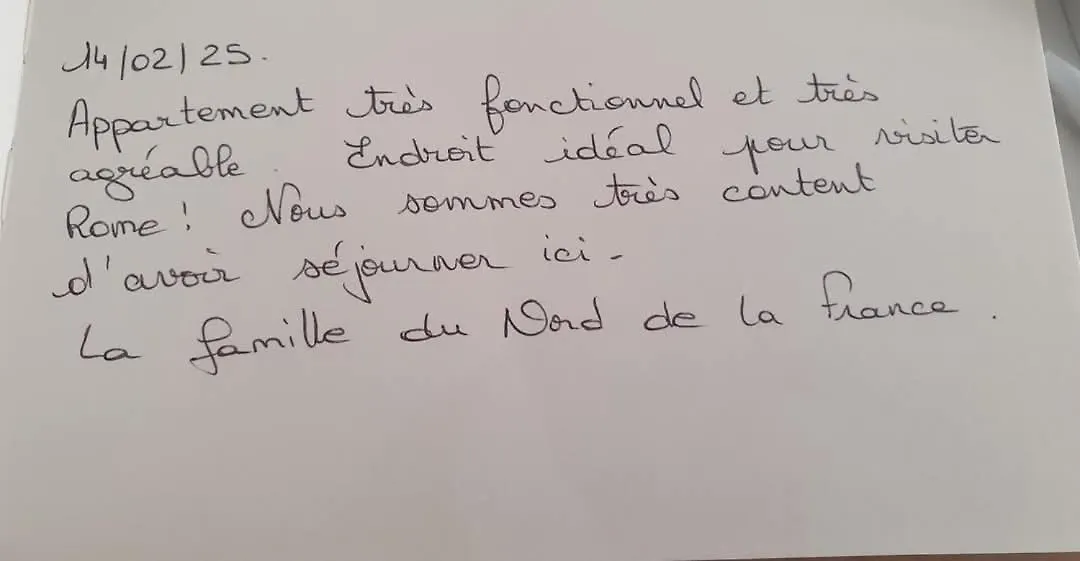 14/02/25.
Appartement très fonctionnel et très
agréable. Endroit idéal pour visiter
Rome! Nous sommes très content
d'avoir séjourner ici.
La famille du Nord de la France.